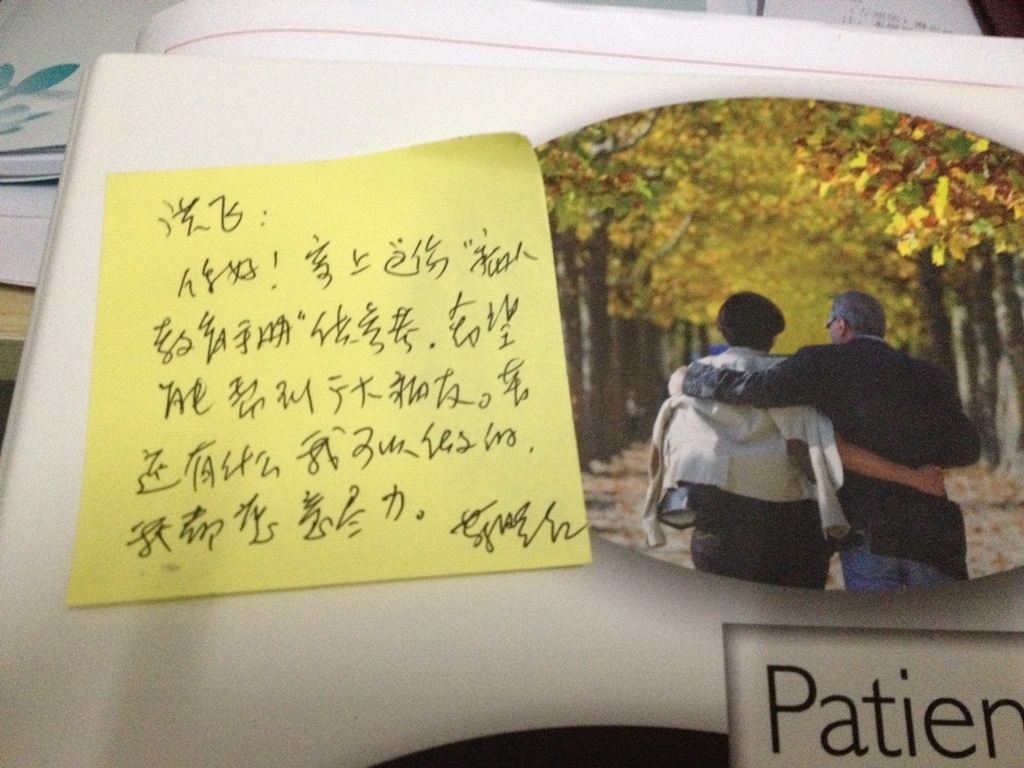 洪飞：
你好！寄上这份“病人
教育手册”供参考．希望
能帮到于大病友。若
还有什么我可以做的，
我都愿意尽力。
Patien